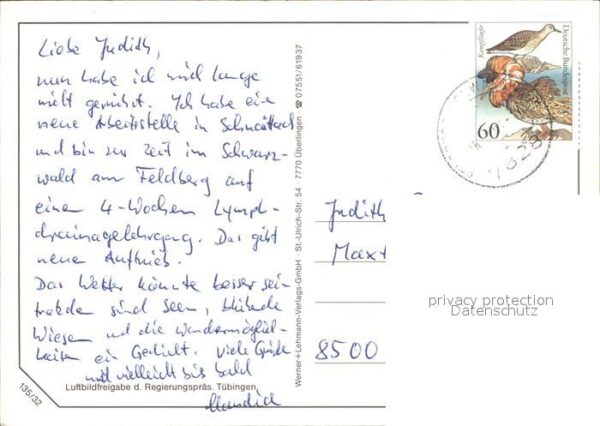 Liebe Judith,
nun habe ich mich lange
nicht gerührt. Ich habe eine
neue Arbeitsstelle in
und bin zur Zeit im Schwarz-
wald am Feldberg auf
einen 4-Wochen Lymph-
drainagelehrgang. Das gibt
neue Auftrieb.
Das Wetter könnte besser sein
trotzdem sind Seen, blühende
Wiesen und die Wandermöglich-
keiten ein Gedicht. Viele Grüße
und vielleicht bis bald
Luftbildfreigabe d. Regierungspräs. Tübingen
135/32
Werner+Lehmann-Verlags-GmbH St.-Ulrich-Str. 54 · 7770 Überlingen ☎ 07551/61937
Kampfläufer
Deutsche Bundespost
60
Judith
Maxt
8500
privacy protection
Datenschutz